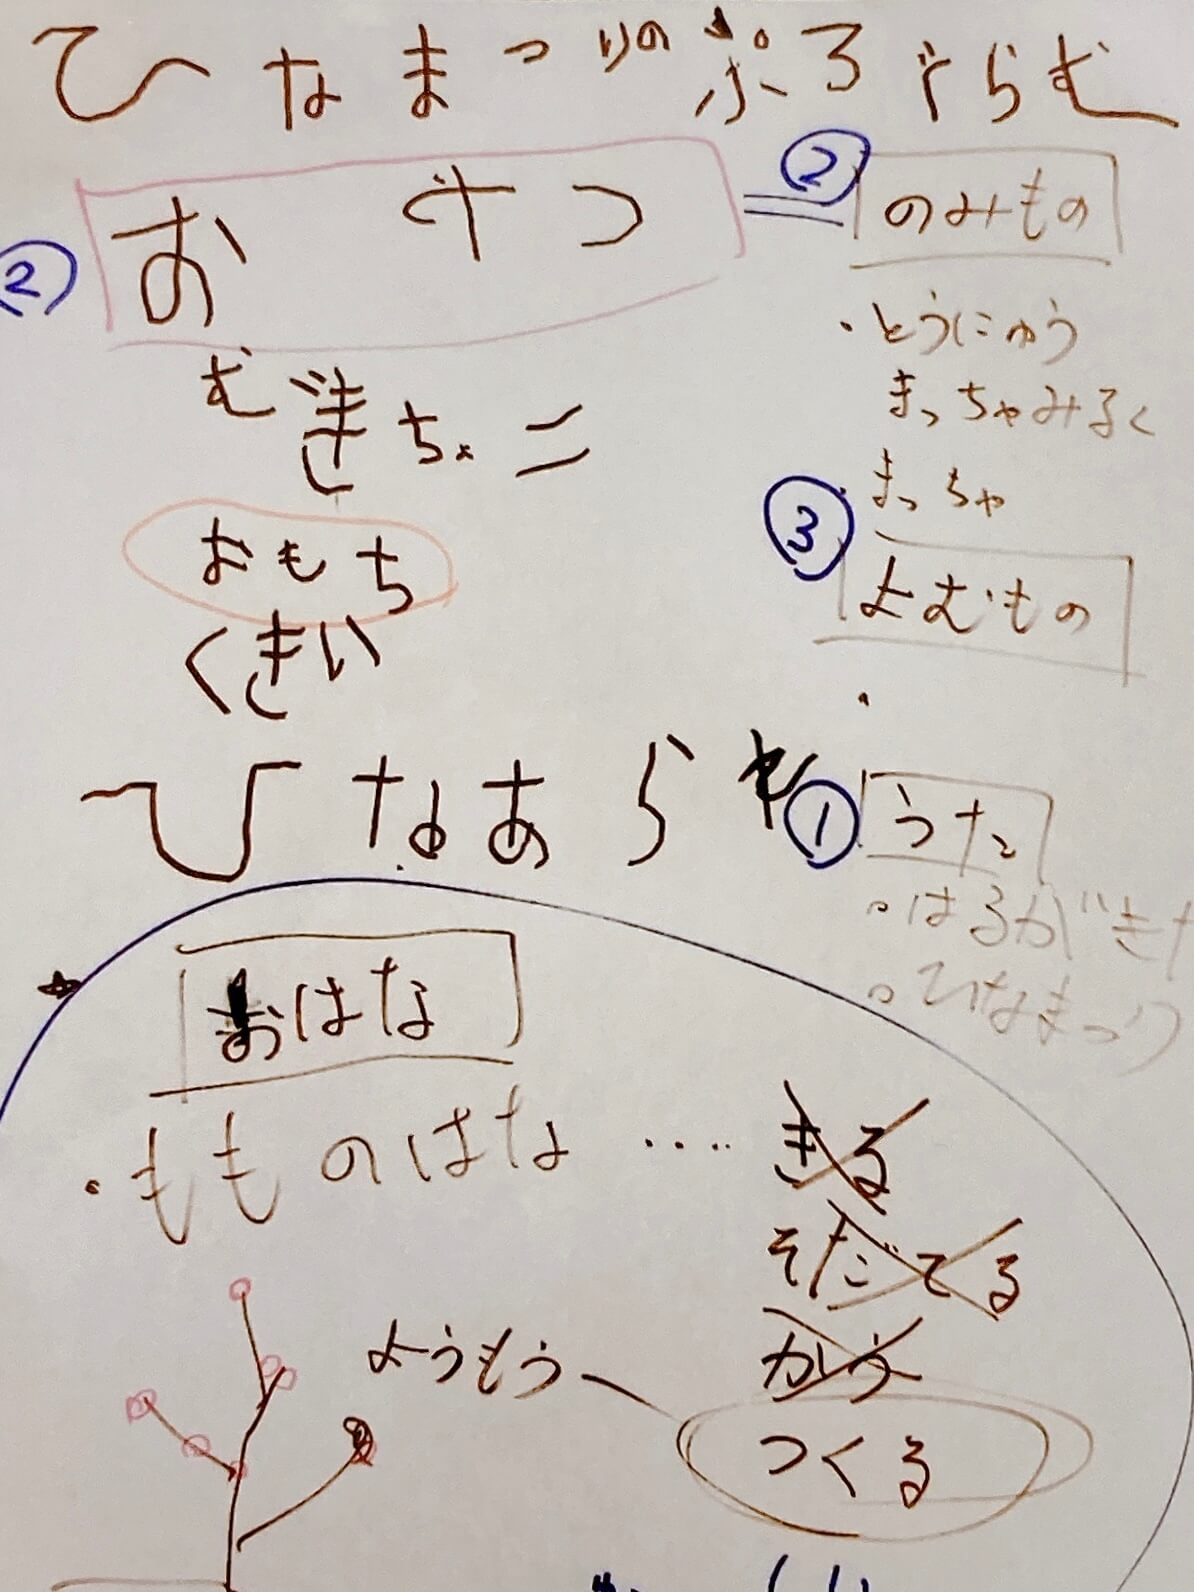 ひなまつりのぷろぐらむ
② おやつ
むぎちょこ
おもち
くきい
ひなあられ
② のみもの
・とうにゅう
まっちゃみるく
まっちゃ
③ よむもの
・
① うた
・はるがきた
・ひなまつり
おはな
・もものはな ････ きる
そだてる
かう
ようもう つくる